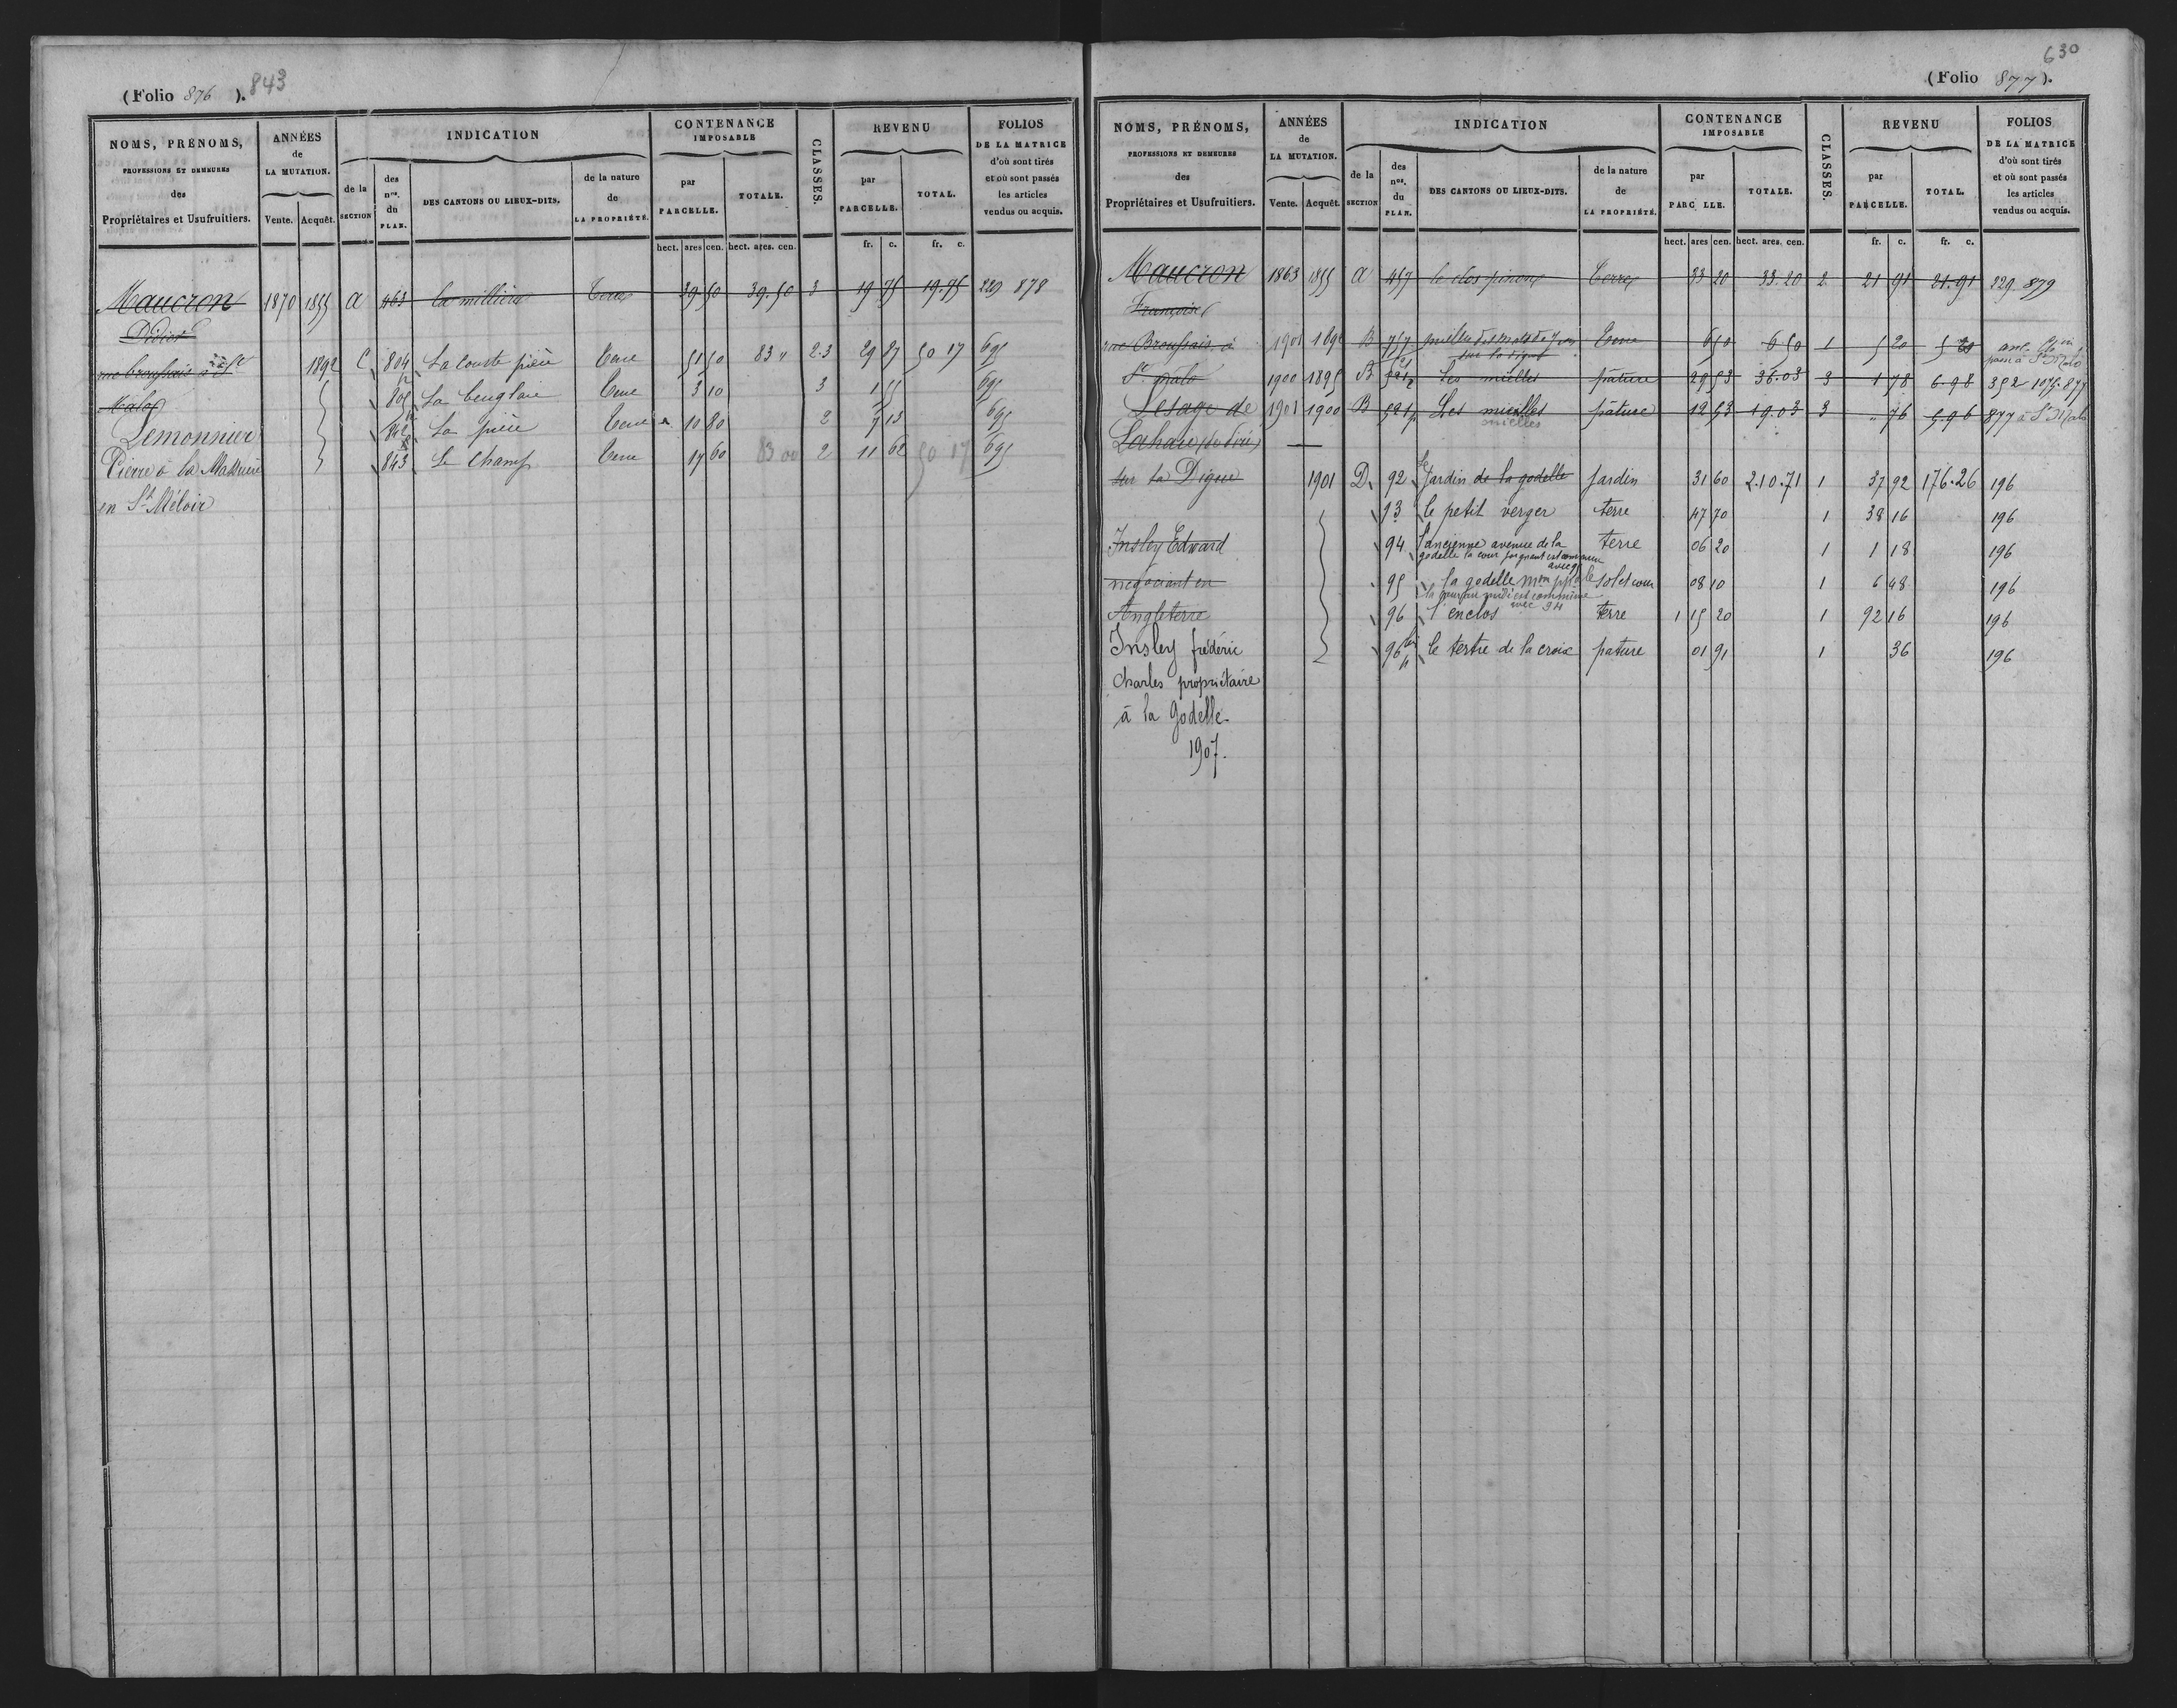 (Folio 876 ). 843
NOMS, PRÉNOMS,
PROFESSIONS ET DEMEURES
des
Propriétaires et Usufruitiers.
ANNÉES
de
LA MUTATION.
Vente. Acquêt.
INDICATION
de la
SECTION
des
nos.
du
PLAN.
DES CANTONS OU LIEUX-DITS.
de la nature
de
LA PROPRIÉTÉ.
CONTENANCE
IMPOSABLE
par
PARCELLE.
TOTALE.
hect. ares cen. hect. ares. cen.
CLASSES.
REVENU
par
PARCELLE.
TOTAL.
fr. c. fr. c.
FOLIOS
DE LA MATRICE
d'où sont tirés
et où sont passés
les articles
vendus ou acquis.
Maucron 1870 1855 a 463 la millière Terre 39 50 39.50 3 19 75 19.75 229 878
Didier
rue broussais à St 1892 C 804 La courte pièce Terre 51 50 83 " 2.3 29 87 50 17 695
Malo 805 La Terre 3 10 3 1 55 695
Lemonnier 842 La pièce Terre 10 80 2 7 13 695
Pierre à la 843 Le Champ Terre 17 60 83 00 2 11 62 50 17 695
en St Méloir
630
(Folio 877 ).
NOMS, PRÉNOMS,
PROFESSIONS ET DEMEURES
des
Propriétaires et Usufruitiers.
ANNÉES
de
LA MUTATION.
Vente. Acquêt.
INDICATION
de la
SECTION
des
nos.
du
PLAN.
DES CANTONS OU LIEUX-DITS.
de la nature
de
LA PROPRIÉTÉ.
CONTENANCE
IMPOSABLE
par
PARC LLE.
TOTALE.
hect. ares cen. hect. ares. cen.
CLASSES.
REVENU
par
PARCELLE.
TOTAL.
fr. c. fr. c.
FOLIOS
DE LA MATRICE
d'où sont tirés
et où sont passés
les articles
vendus ou acquis.
Maucron 1863 1855 a 457 le clos pinoux Terre 33 20 33.20 2 21 91 21.91 229 879
Françoise
rue Broussais à 1901 1898 B 757 Terre 6 50 6 50 1 5 20 5 20
sur la digue passé à St Malo
St malo 1900 1895 B 521p Les mielles pâture 29 53 36.03 3 1 78 6.98 352 1075.877
Lesage de 1901 1900 B 521p Les mielles pâture 12 53 19.03 3 " 76 5.96 877 à St Malo
mielles
Lahaie
sur la Digue 1901 D 92 Le Jardin de la godelle Jardin 31 60 2.10.71 1 37 92 176.26 196
93 le petit verger terre 47 70 1 38 16 196
Insley Edward 94 l'ancienne avenue de la terre 06 20 1 1 18 196
godelle la cour joignant est commune
avec 95
négociant en 95 la godelle mon ppale sol et cour 08 10 1 6 48 196
la cour au midi est commune
avec 94
Angleterre 96 l'enclos terre 1 15 20 1 92 16 196
Insley frédéric 96 bis le tertre de la croix pature 01 91 1 36 196
Charles propriétaire
à la Godelle.
1907.